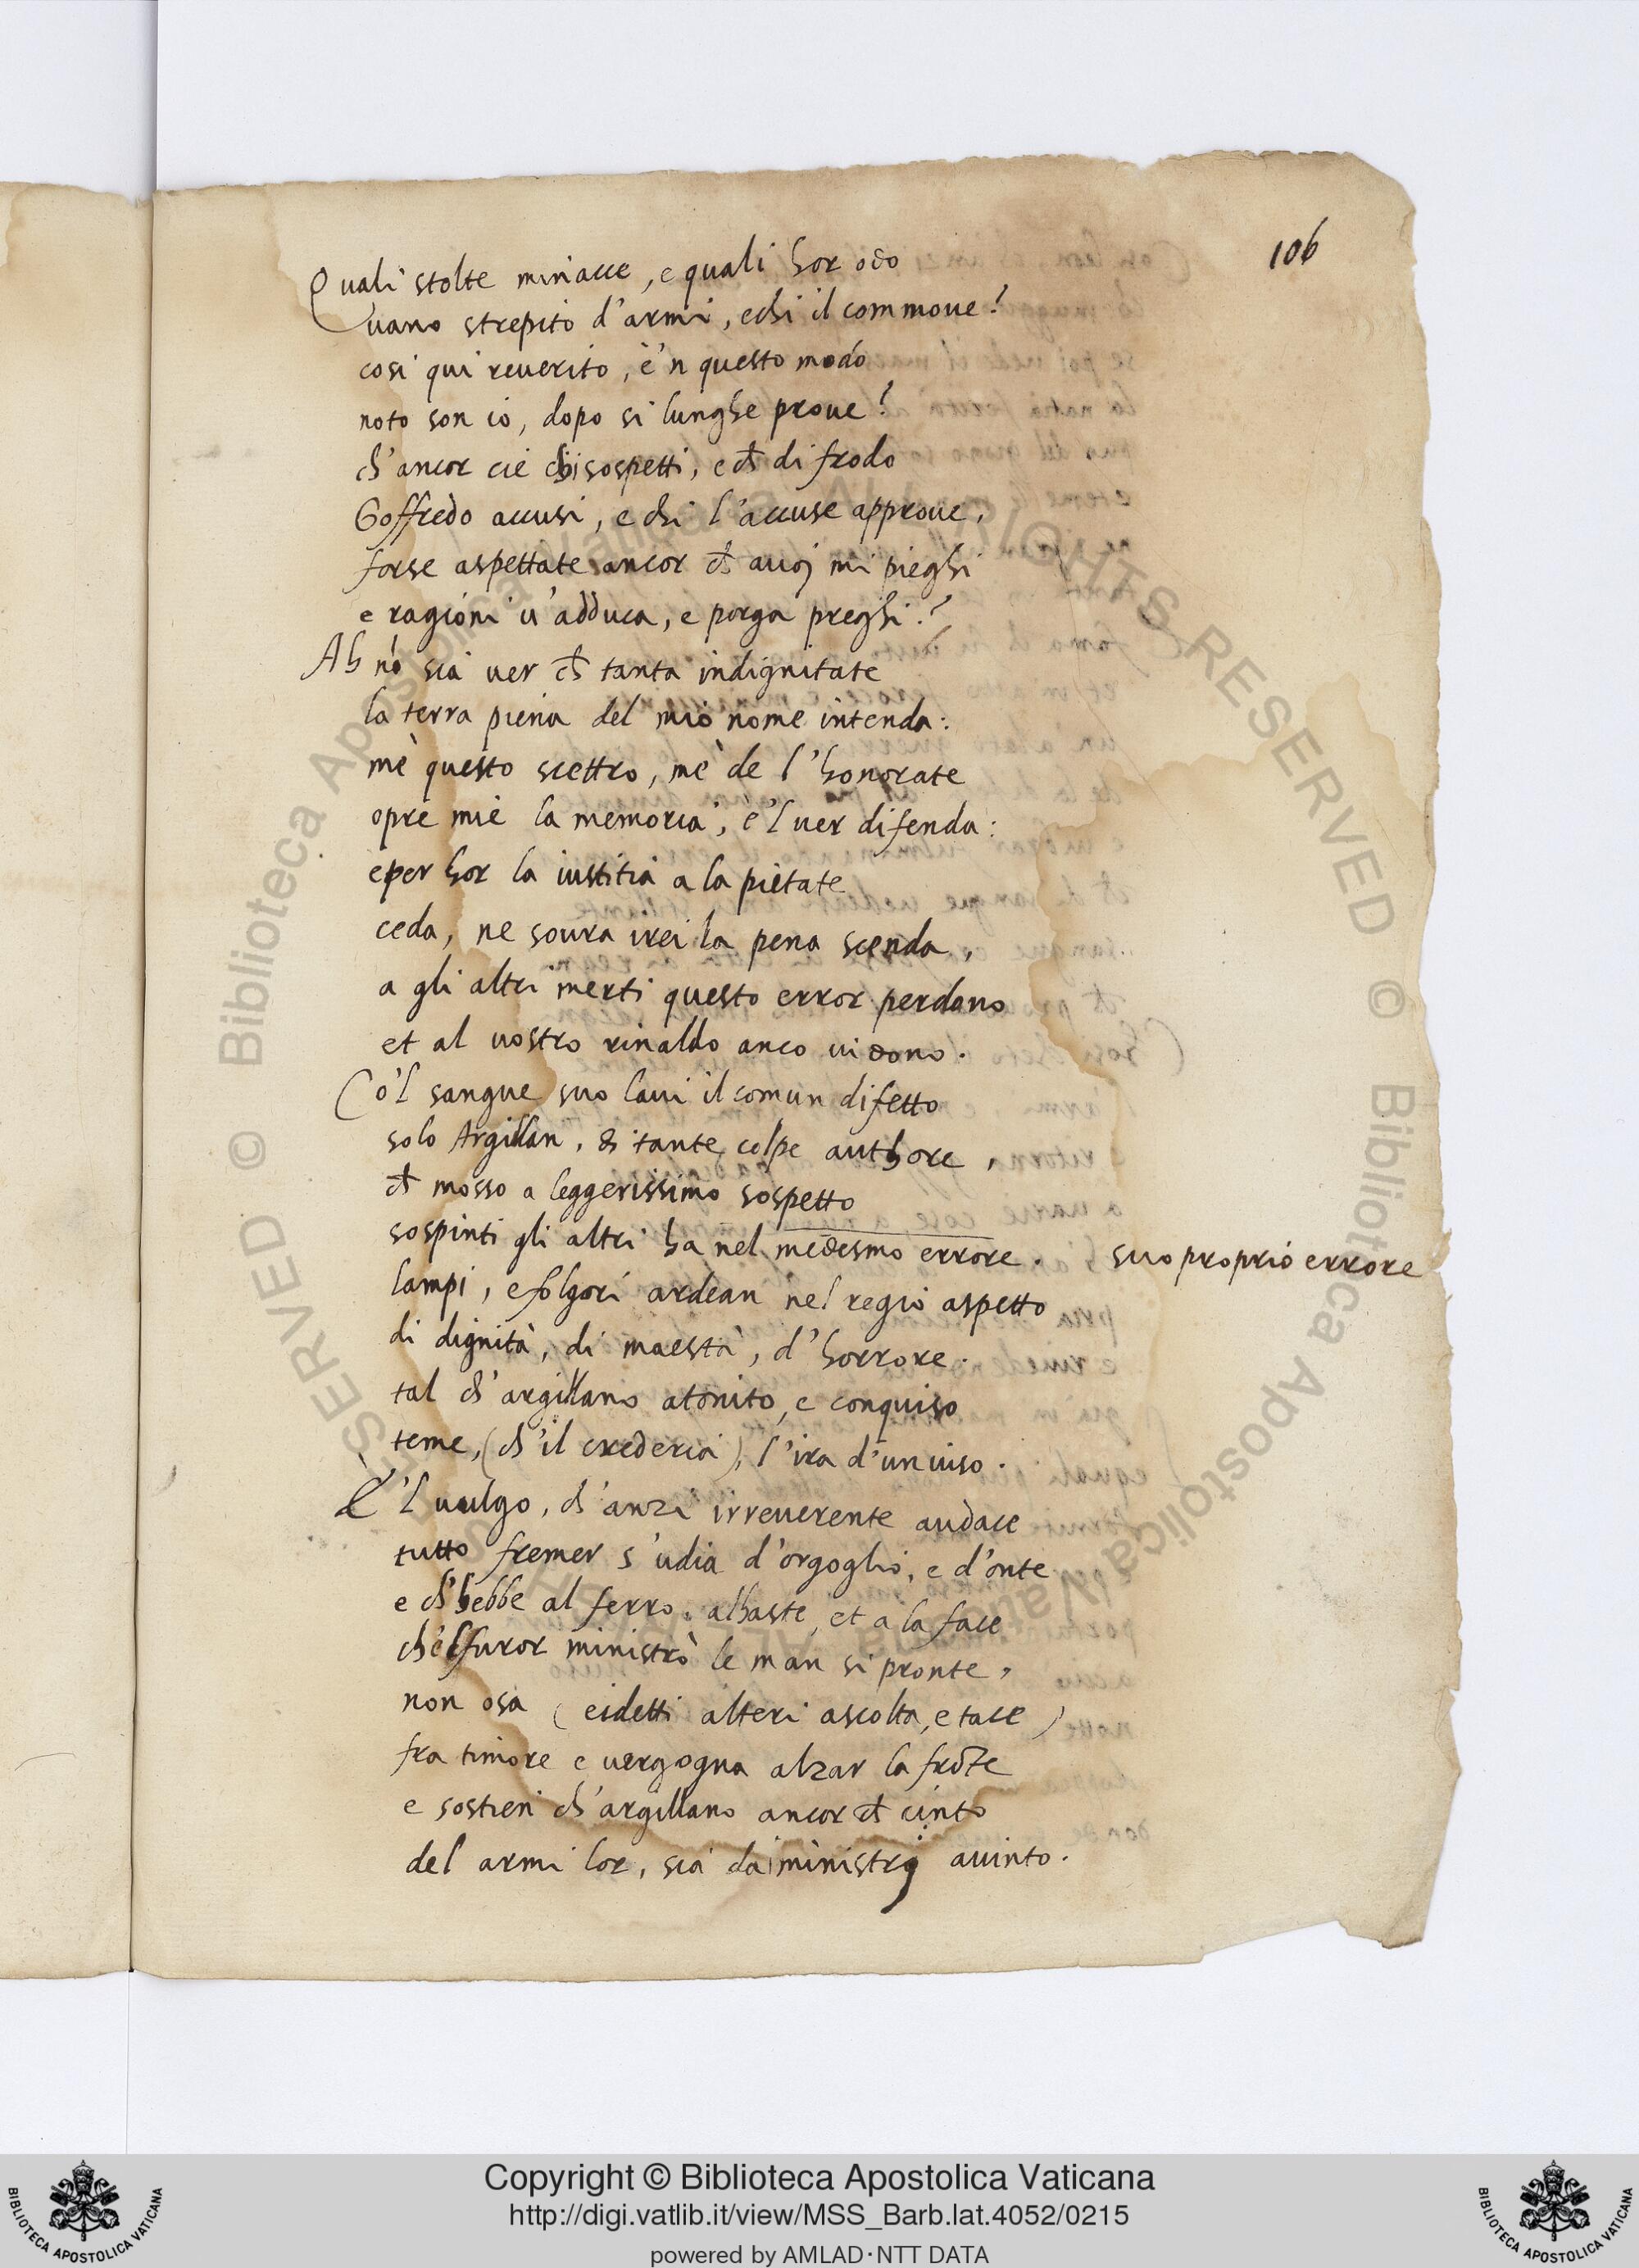 106
Quali stolte minacce, e quali hor odo
vano strepito d'armi, e chi il commoue?
cosi qui reuerito, e'n questo modo
noto son io, dopo si lunghe proue?
ch'ancor cie chi sospetti, e ch̃ di frodo
Goffredo accusi, e chi l'accuse approue,
forse aspettate ancor ch̃ auoj mi pieghi
e ragioni u'adduca, e porga preghi?
Ah nò sia uer ch̃ tanta indignitate
la terra piena del mio nome intenda:
mè questo scettro, mè de l'honorate
opre mie la memoria, e'l uer difenda:
e per hor la iustitia a la pietate
ceda, ne soura i rei la pena scenda,
a gli altri merti questo error perdono
et al uostro rinaldo anco ui dono.
Co'l sangue suo laui il comun difetto
solo Argillan, di tante colpe authore,
ch̃ mosso a leggerissimo sospetto
sospinti gli altri ha nel medesmo errore. suo proprio errore
lampi, e folgori ardean nel regio aspetto
di dignità, di maestà, d'horrore.
tal ch'argillano atonito, e conquiso
teme, (ch'il crederia), l'ira d'un uiso.
E'l uulgo, ch'anzi irreuerente audace
tutto fremer s'udia d'orgoglio, e d'onte
e ch'hebbe al ferro, a l'haste, et a la face
che'l furor ministrò le man si pronte,
non osa (e i detti alteri ascolta, e tace)
fra timore e uergogna alzar la frõte
e sostien ch'argillano ancor ch̃ cinto
del armi lor, sia da ministrj auinto.
BIBLIOTECA APOSTOLICA VATICANA
Copyright © Biblioteca Apostolica Vaticana
http://digi.vatlib.it/view/MSS_Barb.lat.4052/0215
powered by AMLAD·NTT DATA
BIBLIOTECA APOSTOLICA VATICANA